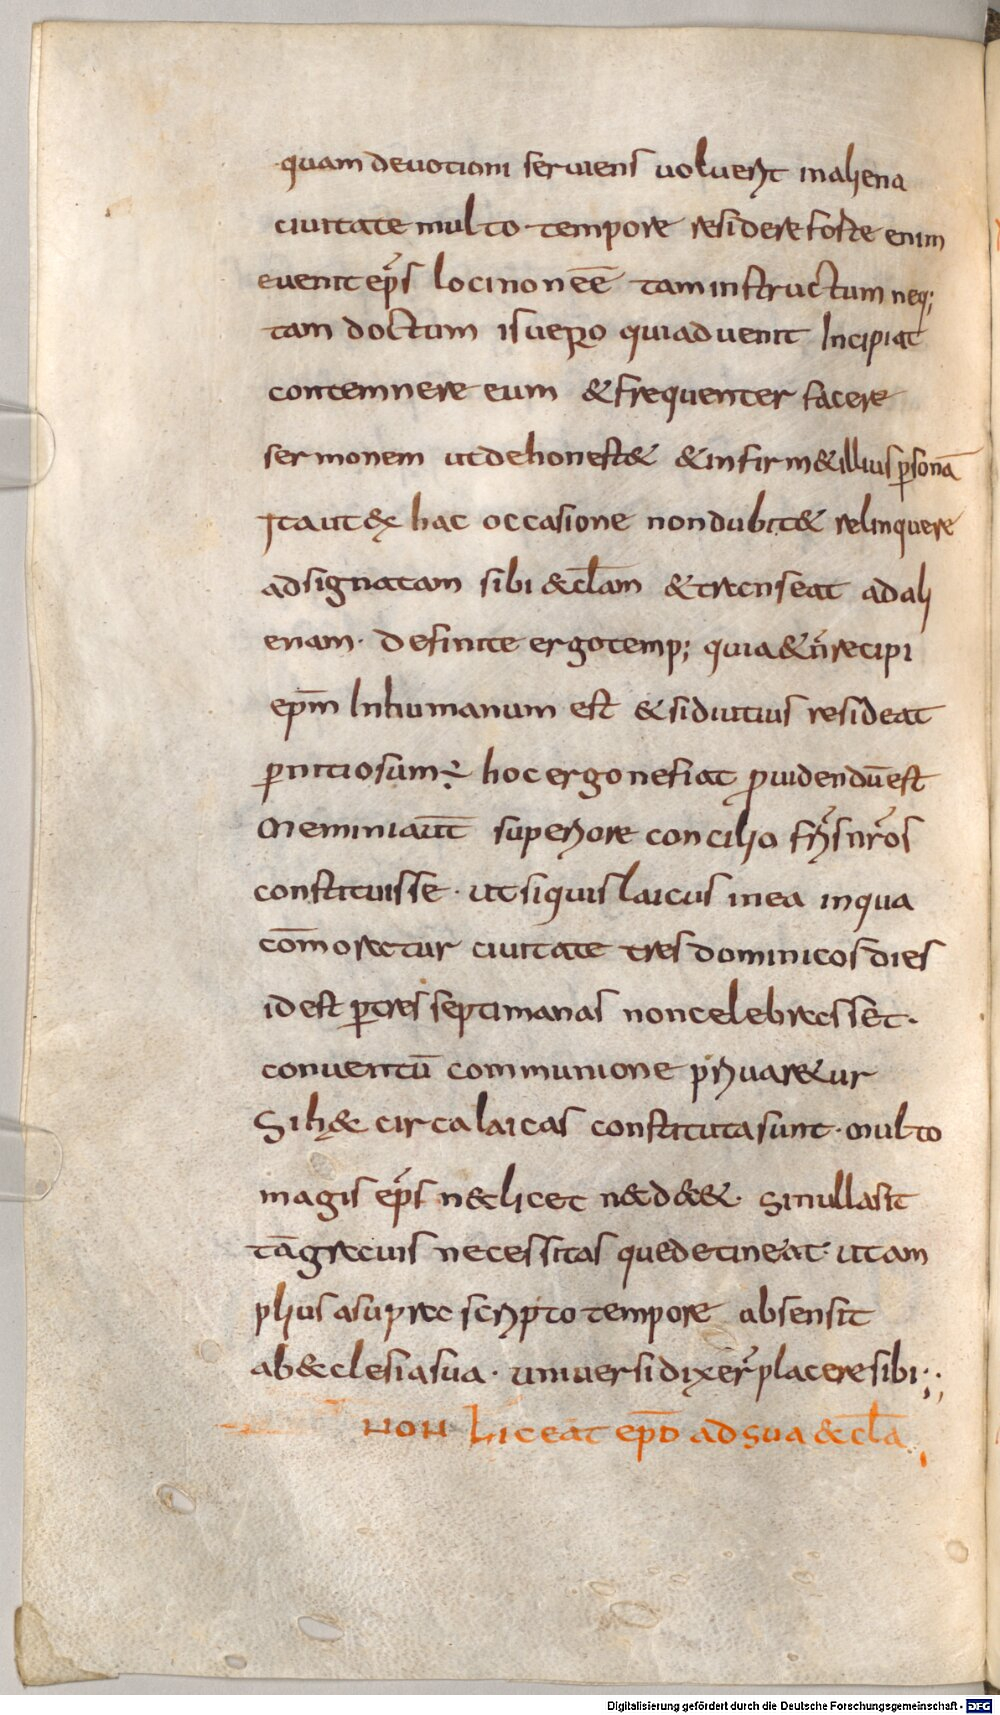 quam deuotioni seruiens uoluerit in aliena
ciuitate multo tempore residere forte enim
euenit ep̃s loci non eē tam instructum neq;
tam doctum is uero qui aduenit Incipiat
contemnere eum & frequenter facere
sermonem ut dehonest& & infirm& illius p̱sonā
Ita ut &x hac occasione non dubit& relinquere
adsignatam sibi &clām & transeat ad ali
enam· Definite ergo temp; quia & ñ recipi
ep̄m Inhumanum est & si diutius resideat
p̱nitiosum÷ hoc ergo ne fiat p̱uidendū est
Meminiaut̄ superiore concilio fr̃s nr̃os
constituisse · ut si quis laicus in ea in qua
cōmoratur ciuitate tres dominicos dies
id est p̱ tres septimanas non celebrasset·
conuentū communione priuar&ur
Si h&c circa laicas constituta sunt · multo
magis ep̃s n&c licet n&c dec& · si nulla sit
tā grauis necessitas que detineat· ut am
plius a supra scripto tempore absens sit
ab &clesia sua · uniuersi dixer̃ placere sibi·,·,
NON Liceat ep̄o ad sua &clā
Digitalisierung gefördert durch die Deutsche Forschungsgemeinschaft - DFG